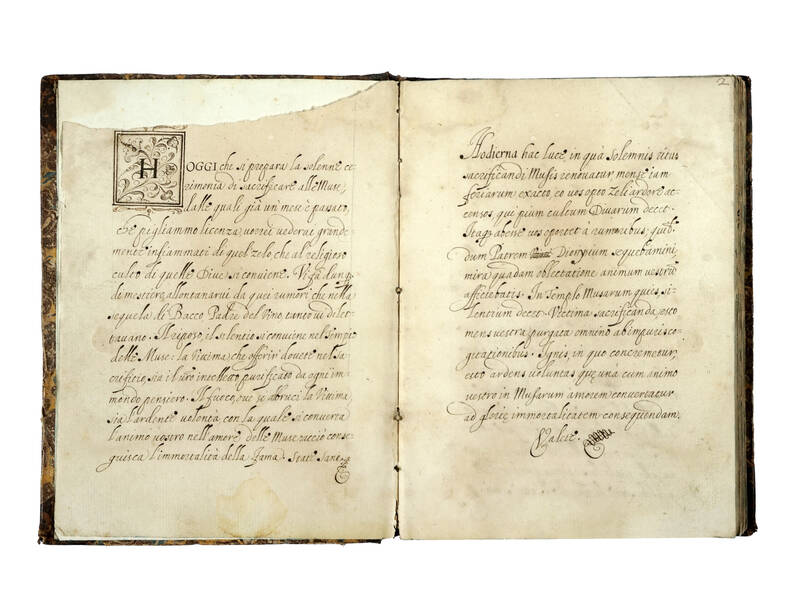 HOGGI che si prepara la solenne ce
rimonia di sacrificare alle Muse,
dalle quali già un' mese è passato,
che pigliammo licenza, vorrei vederui grande
mente infiammati di quel zelo che al religioso
culto di quelle Diue si conuiene. Vi fà dunq;
di mestiere allontanarui da quei rumori che nella
sequela di Bacco Padre del Vino, tanto vi dilet
tauano. Il riposo, il silentio si conuiene nel Tempio
delle Muse: la Vittima, che offerir douete nel sa
crificio, sia il uro intelletto purificato da ogni im
mondo pensiero. Il fuoco, oue si abruci la Vittima,
sia l'ardente volontà con la quale si conuerta
l'animo vostro nell'amore delle Muse acciò conse
guisca l'immortalità della Fama. State sane.
2
Hodierna hac luce, in qua solemnis ritus
sacrificandi Musis renouatur, mense iam
feriarum exacto, eo vos opto zeli ardore ac
censos, qui pium cultum Diuarum decet.
Itaq; abesse vos oportet a rumoribus, quib;
dum Patrem Dionysium sequebamini,
mira quadam oblectatione animum vestrũ
afficiebatis. In Templo Musarum quies, si
lentium decet. Victima sacrificanda, esto
mens vestra purgata omnino ab impuris co
gitationibus. Ignis, in quo concremetur,
esto ardens voluntas qua una cum animo
vestro in Musarum amorem conuertatur
ad gloriæ immortalitatem consequendam.
Valete.